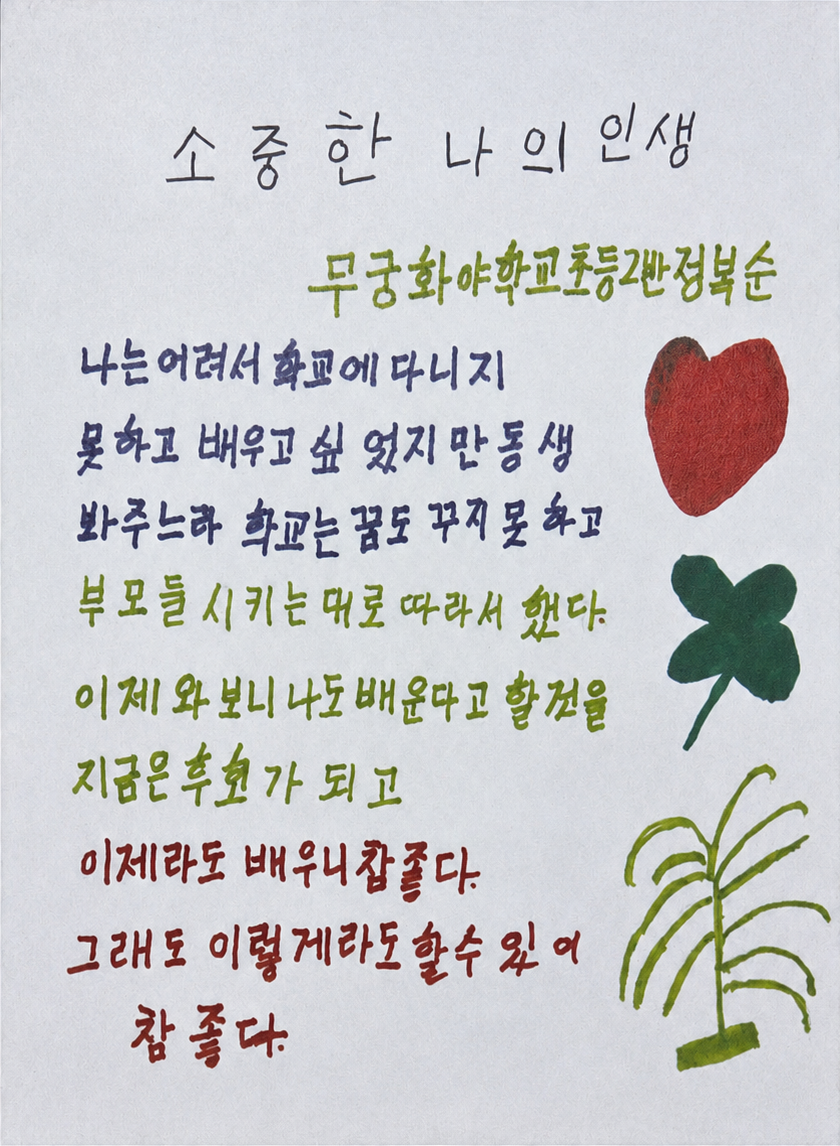 소중한 나의 인생
무궁화야학교초등2반정복순
나는어려서학교에다니지
못하고 배우고싶었지만동생
봐주느라 학교는꿈도 꾸지못하고
부모들시키는대로따라서했다.
이제와보니나도배운다고 할것을
지금은후회가 되고
이제라도 배우니참좋다.
그래도 이렇게라도할수있어
참좋다.